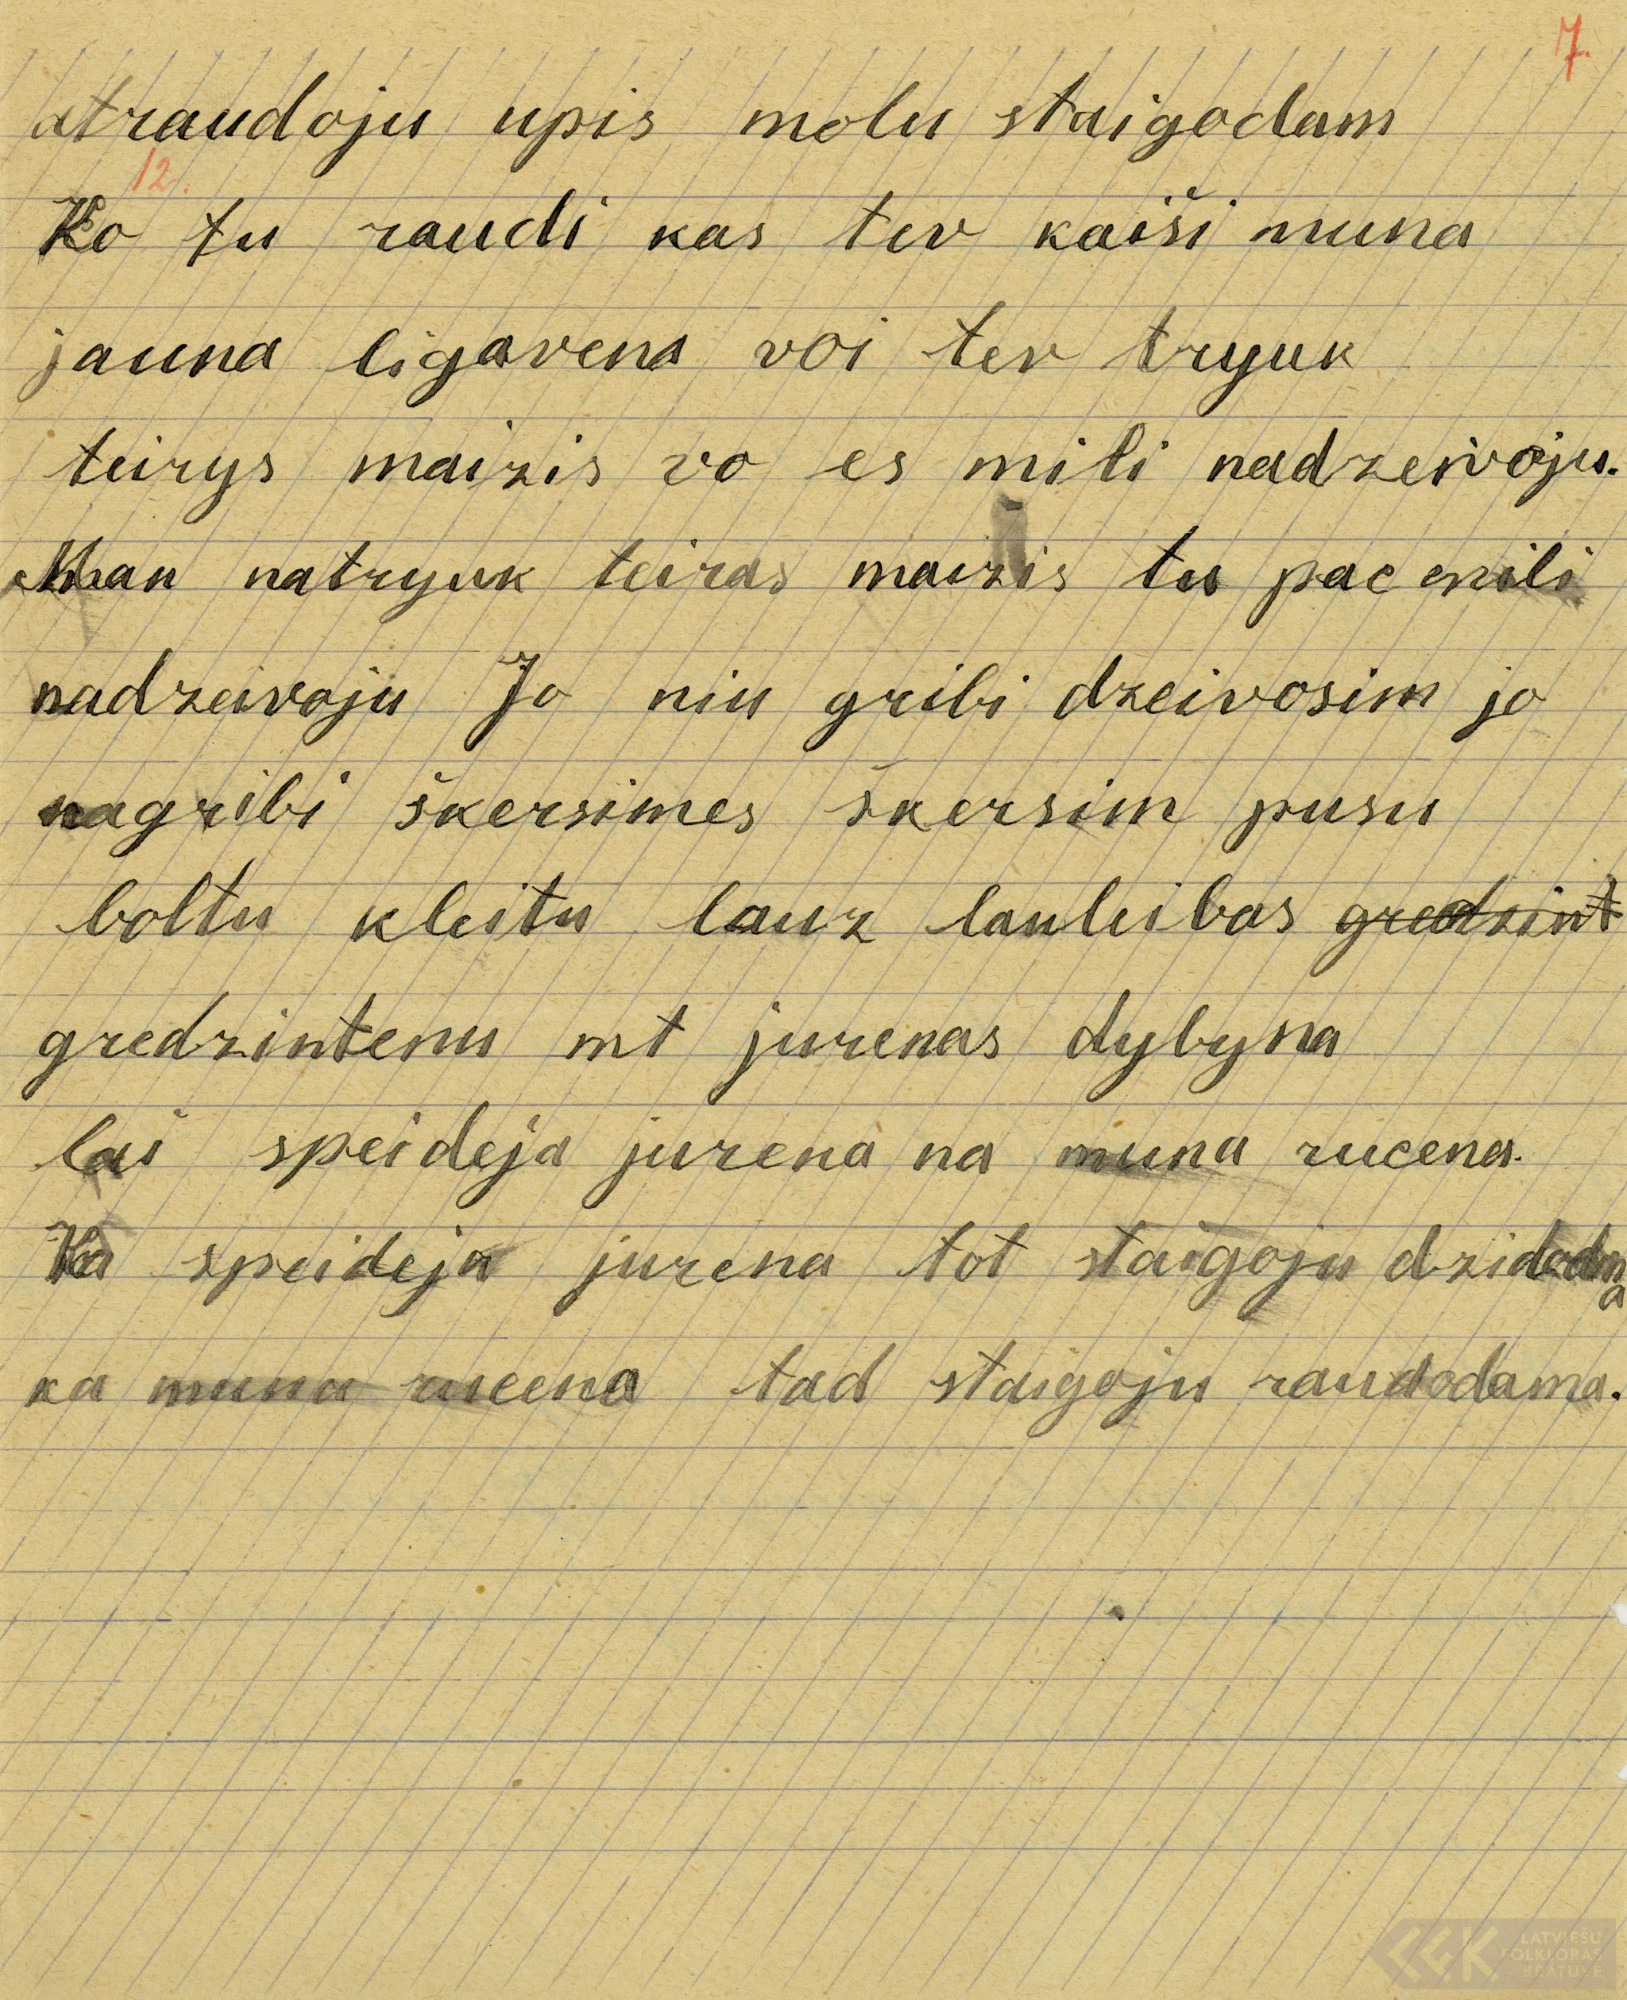 7.
atraudoju upis molu staigodam
12.
Ko tu raudi kas tev kaiši muna
jauna ligavena voi tev tryuk
teirys maizis vo es mili nadzeivoju.
Man natryuk teiras maizis tu pac mili
nadzeivoju Jo niu gribi dzeivosim jo
nagribi škersimes škersim pusu
boltu kleitu lauz lauleibas gredzint
gredzintenu mt jurenas dybyna
lai speideja jurena na muna rucena.
Ka speideja jurena tot staigoju dzidodma
ka muna rucena tad staigoju raudodama.
LATVIEŠU
FOLKLORAS
KRĀTUVE